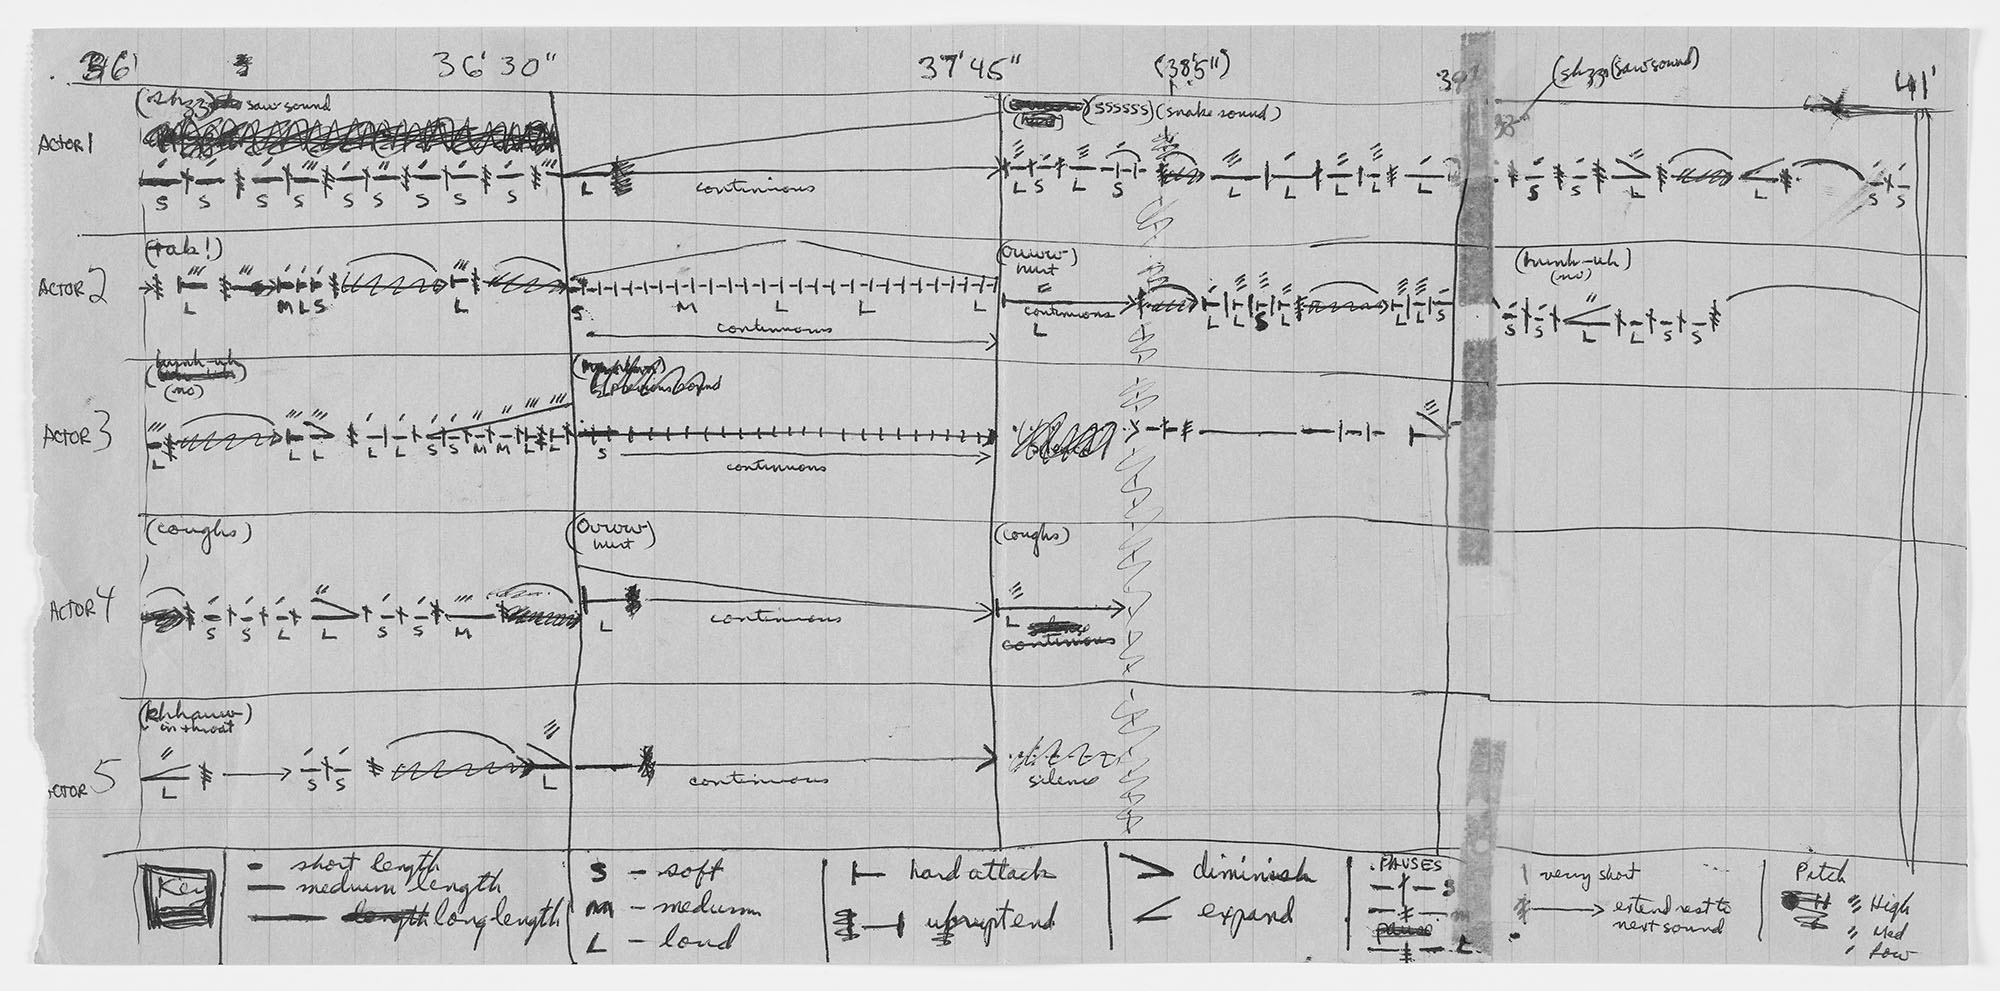 36' 36'30" 37'45" (38'5") 39' (shzz)(saw sound) 41'
ACTOR 1
(shzz) saw sound
(ssssss) (snake sound)
S S S S S S S S S L L S L S L L L L L S S L L S S
continuous
ACTOR 2
(tak!)
(Ouww hurt)
(hunh-uh)
(no)
L M L S L S M L L L L L L S L L L S S S L L S S
continuous
continuous
ACTOR 3
(hunh-uh
(no)
previous sound
L L L L L S S M M L L S
continuous
ACTOR 4
(coughs)
(Ouww hurt)
(coughs)
S S L L S S M L L
continuous
silence
continuous
ACTOR 5
(khhauw)
in throat
L S S L
continuous
silence
Key
short length
medium length
length long length
S - soft
M - medium
L - loud
hard attack
upruptend
diminish
expand
PAUSES
S
m
pause
L
very short
extend rest to
next sound
Pitch
High
Med
Low